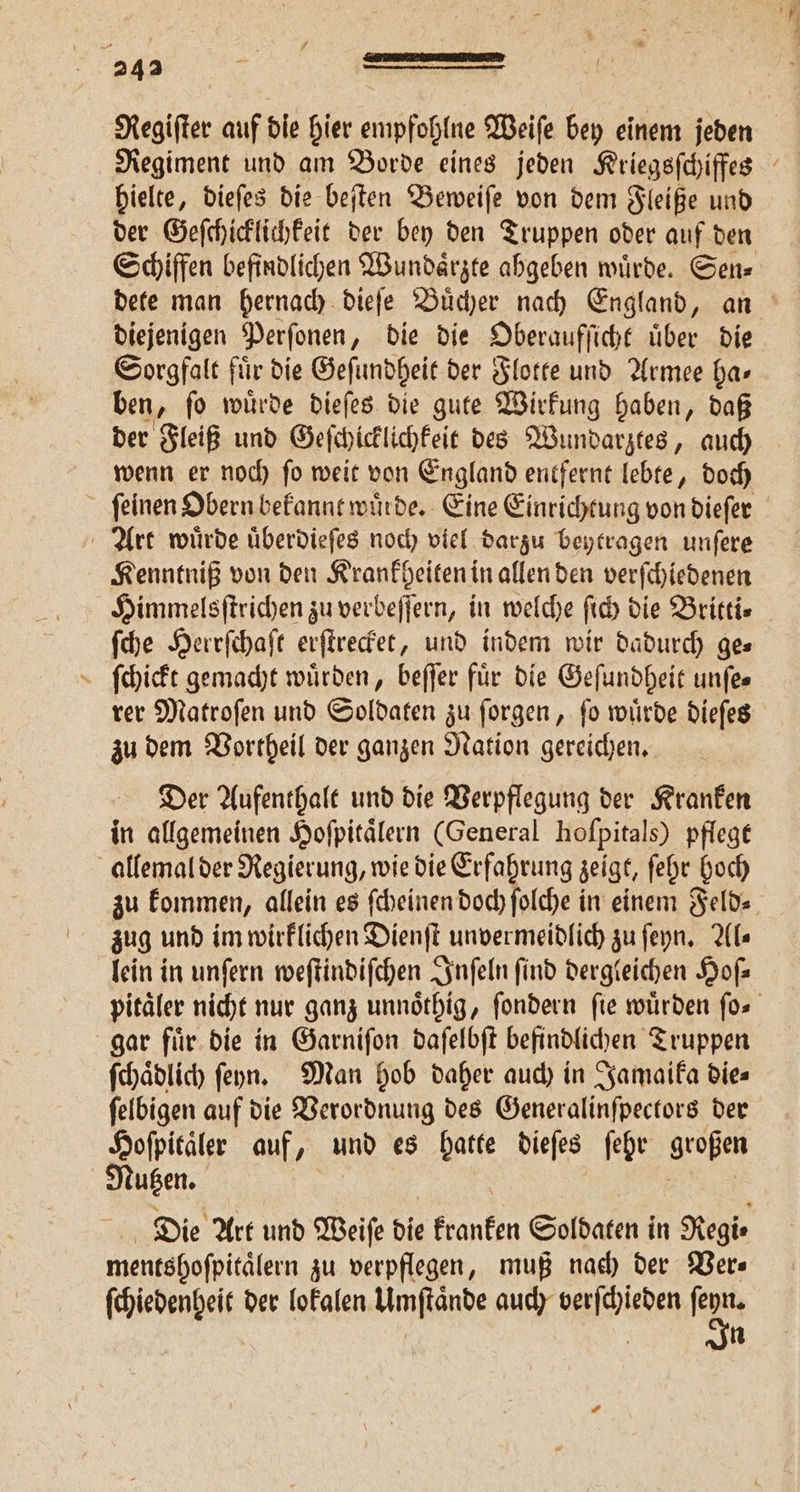 242
Regiſter auf die hier empfohlne Weiſe bey einem jeden
Regiment und am Borde eines jeden Kriegsſchiffes
hielte, dieſes die beſten Beweiſe von dem Fleiße und
der Geſchicklichkeit der bey den Truppen oder auf den
Schiffen befindlichen Wundaͤrzte abgeben wuͤrde. Sen-
dete man hernach dieſe Buͤcher nach England, an
diejenigen Perſonen, die die Oberaufſicht uͤber die
Sorgfalt fuͤr die Geſundheit der Flotte und Armee ha-
ben, ſo wuͤrde dieſes die gute Wirkung haben, daß
der Fleiß und Geſchicklichkeit des Wundarztes, auch
wenn er noch ſo weit von England entfernt lebte, doch
ſeinen Obern bekannt wuͤrde. Eine Einrichtung von dieſer
Art wuͤrde uͤberdieſes noch viel darzu beytragen unſere
Kenntniß von den Krankheiten in allen den verſchiedenen
Himmelsſtrichen zu verbeſſern, in welche ſich die Britti-
ſche Herrſchaft erſtrecket, und indem wir dadurch ge-
ſchickt gemacht wuͤrden, beſſer fuͤr die Geſundheit unſe-
rer Matroſen und Soldaten zu ſorgen, ſo wuͤrde dieſes
zu dem Vortheil der ganzen Nation gereichen.
Der Aufenthalt und die Verpflegung der Kranken
in allgemeinen Hoſpitaͤlern (General hoſpitals) pflegt
allemal der Regierung, wie die Erfahrung zeigt, ſehr hoch
zu kommen, allein es ſcheinen doch ſolche in einem Feld-
zug und im wirklichen Dienſt unvermeidlich zu ſeyn. Al-
lein in unſern weſtindiſchen Inſeln ſind dergleichen Hoſ-
pitaͤler nicht nur ganz unnoͤthig, ſondern ſie wuͤrden ſo-
gar fuͤr die in Garniſon daſelbſt befindlichen Truppen
ſchaͤdlich ſeyn. Man hob daher auch in Jamaika die-
ſelbigen auf die Verordnung des Generalinſpectors der
Hoſpitaͤler auf, und es hatte dieſes ſehr großen
Nutzen.
Die Art und Weiſe die kranken Soldaten in Regi-
mentshoſpitaͤlern zu verpflegen, muß nach der Ver-
ſchiedenheit der lokalen Umſtaͤnde auch verſchieden ſeyn.
In